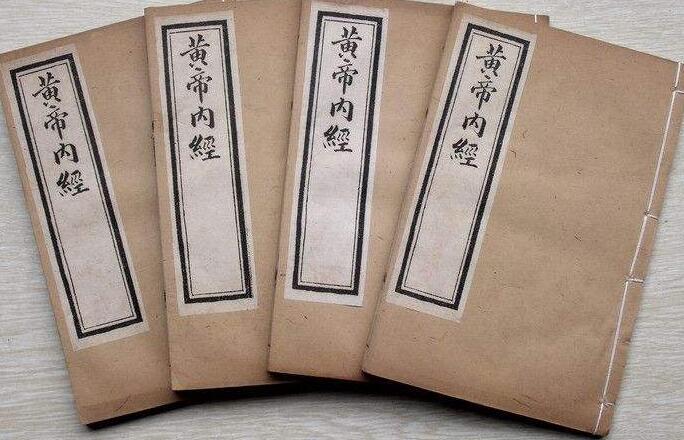 黄帝内經
黄帝内經
黄帝内經
黄帝内經